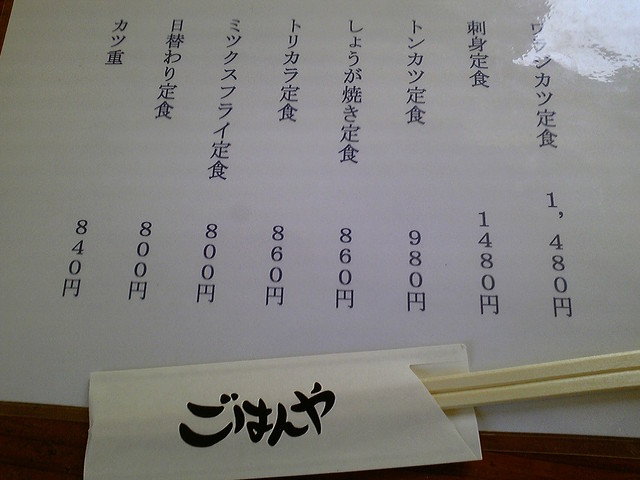 ワラジカツ定食 1,480円
刺身定食 1480円
トンカツ定食 980円
しょうが焼き定食 860円
トリカラ定食 860円
ミックスフライ定食 800円
日替わり定食 800円
カツ重 840円
ごはんや